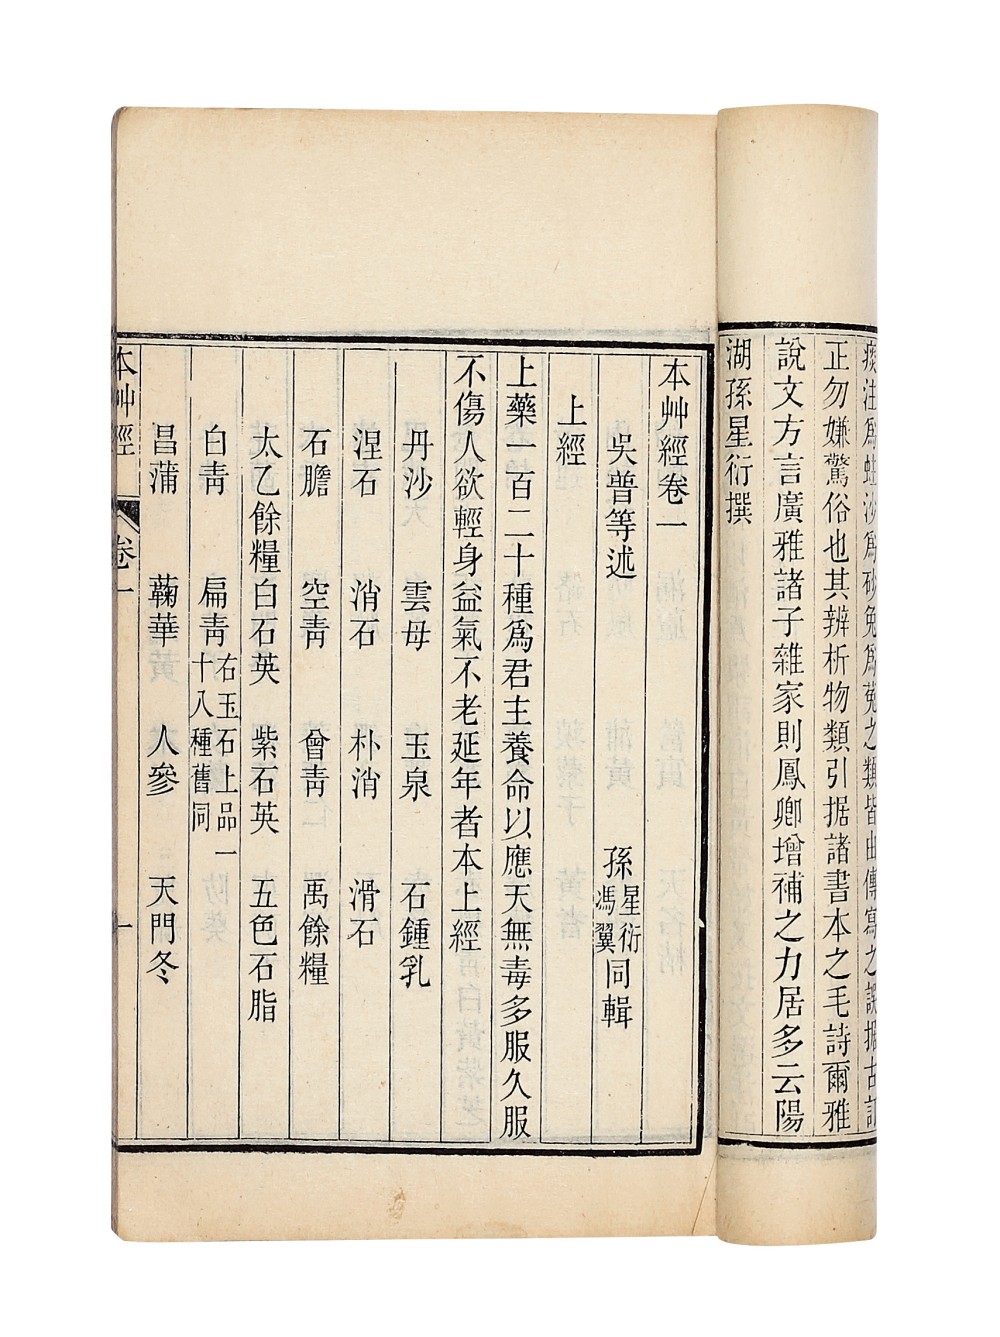 痰注爲蛀沙爲砂兔爲菟之類皆由傳寫之誤据古訂
正勿嫌驚俗也其辨析物類引据諸書本之毛詩爾雅
說文方言廣雅諸子雜家則鳳卿增補之力居多云陽
湖孫星衍撰
本艸經卷一
吳普等述 孫星衍馮翼同輯
上經
上藥一百二十種爲君主養命以應天無毒多服久服
不傷人欲輕身益氣不老延年者本上經
丹沙 雲母 玉泉 石鍾乳
涅石 消石 朴消 滑石
石膽 空靑 曾靑 禹餘糧
太乙餘糧 白石英 紫石英 五色石脂
白靑 扁靑 右玉石上品一十八種舊同
昌蒲 蘜華 人參 天門冬
本艸經 卷一 一